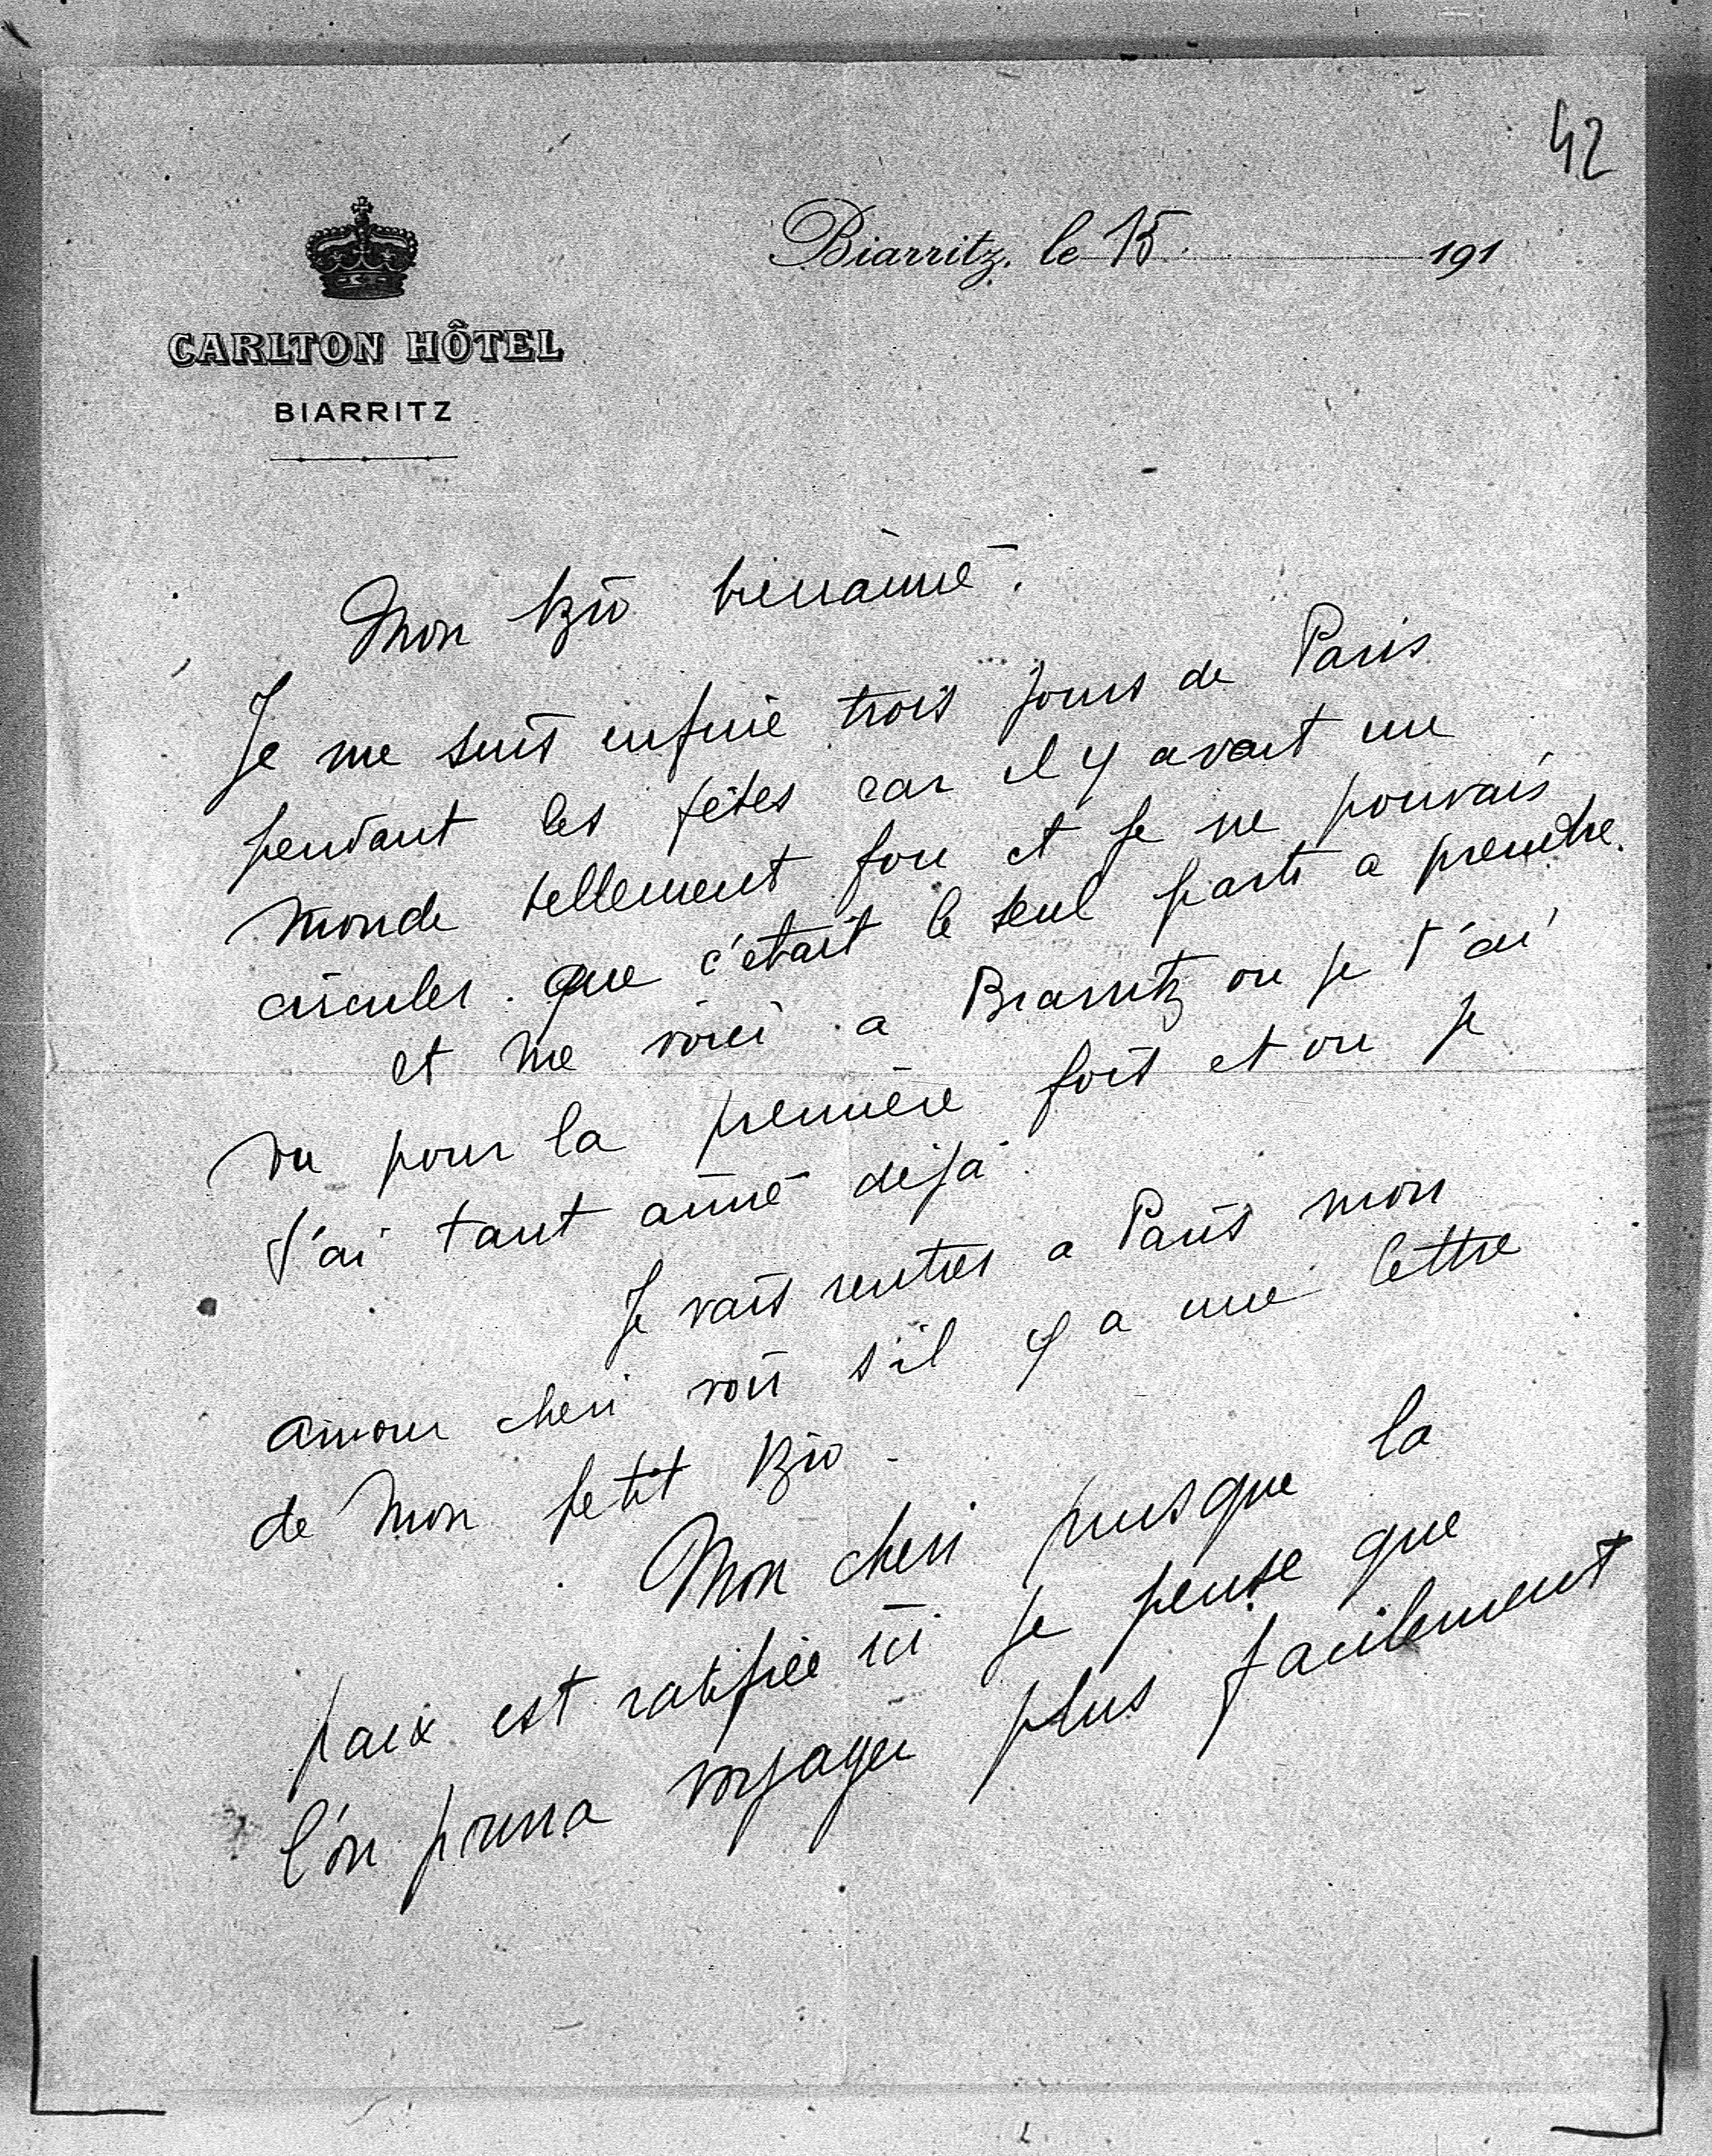 42
Biarritz, le 15 191
CARLTON HÔTEL
BIARRITZ
Mon bienaimé.
Je me suis enfuie trois jours de Paris
pendant les fêtes car il y avait un
monde tellement fou et je ne pouvais
circuler. que c'était le seul parti a prendre.
et me voici a Biarritz ou je t'ai
vu pour la première fois et ou je
t'ai tant aimé déjà.
Je vais rentrer a Paris mon
amour cheri voir s'il y a une lettre
de mon petit
Mon cheri puisque la
paix est ratifiée ici je pense que
l'on pourra voyager plus facilement